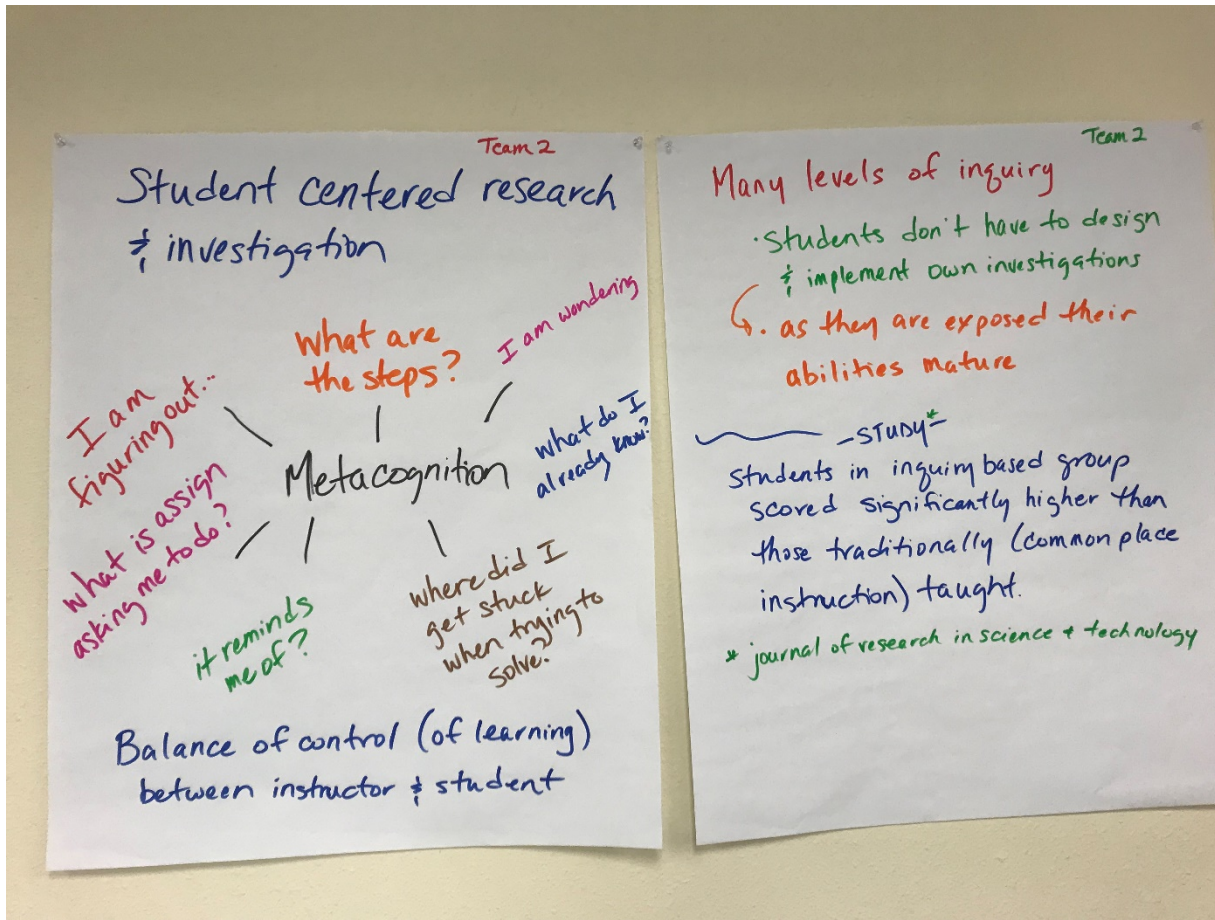 Team 2
Student centered research
& investigation
What are
the steps?
I am wondering
I am
figuring out...
Metacognition
what do I
already know?
what is assign
asking me to do?
it reminds
me of?
where did I
get stuck
when trying to
solve?
Balance of control (of learning)
between instructor & student
Team 2
Many levels of inquiry
· Students don't have to design
& implement own investigations
· as they are exposed their
abilities mature
- STUDY* -
Students in inquiry based group
scored significantly higher than
those traditionally (common place
instruction) taught.
* journal of research in science + technology